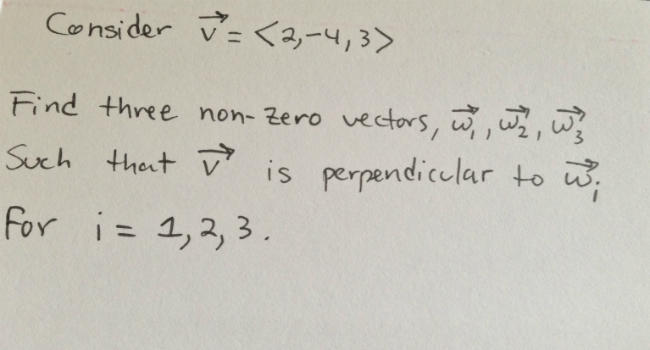 Consider v⃗ = <2,-4,3>
Find three non-zero vectors, w⃗₁, w⃗₂, w⃗₃
Such that v⃗ is perpendicular to w⃗ᵢ
For i = 1,2,3.